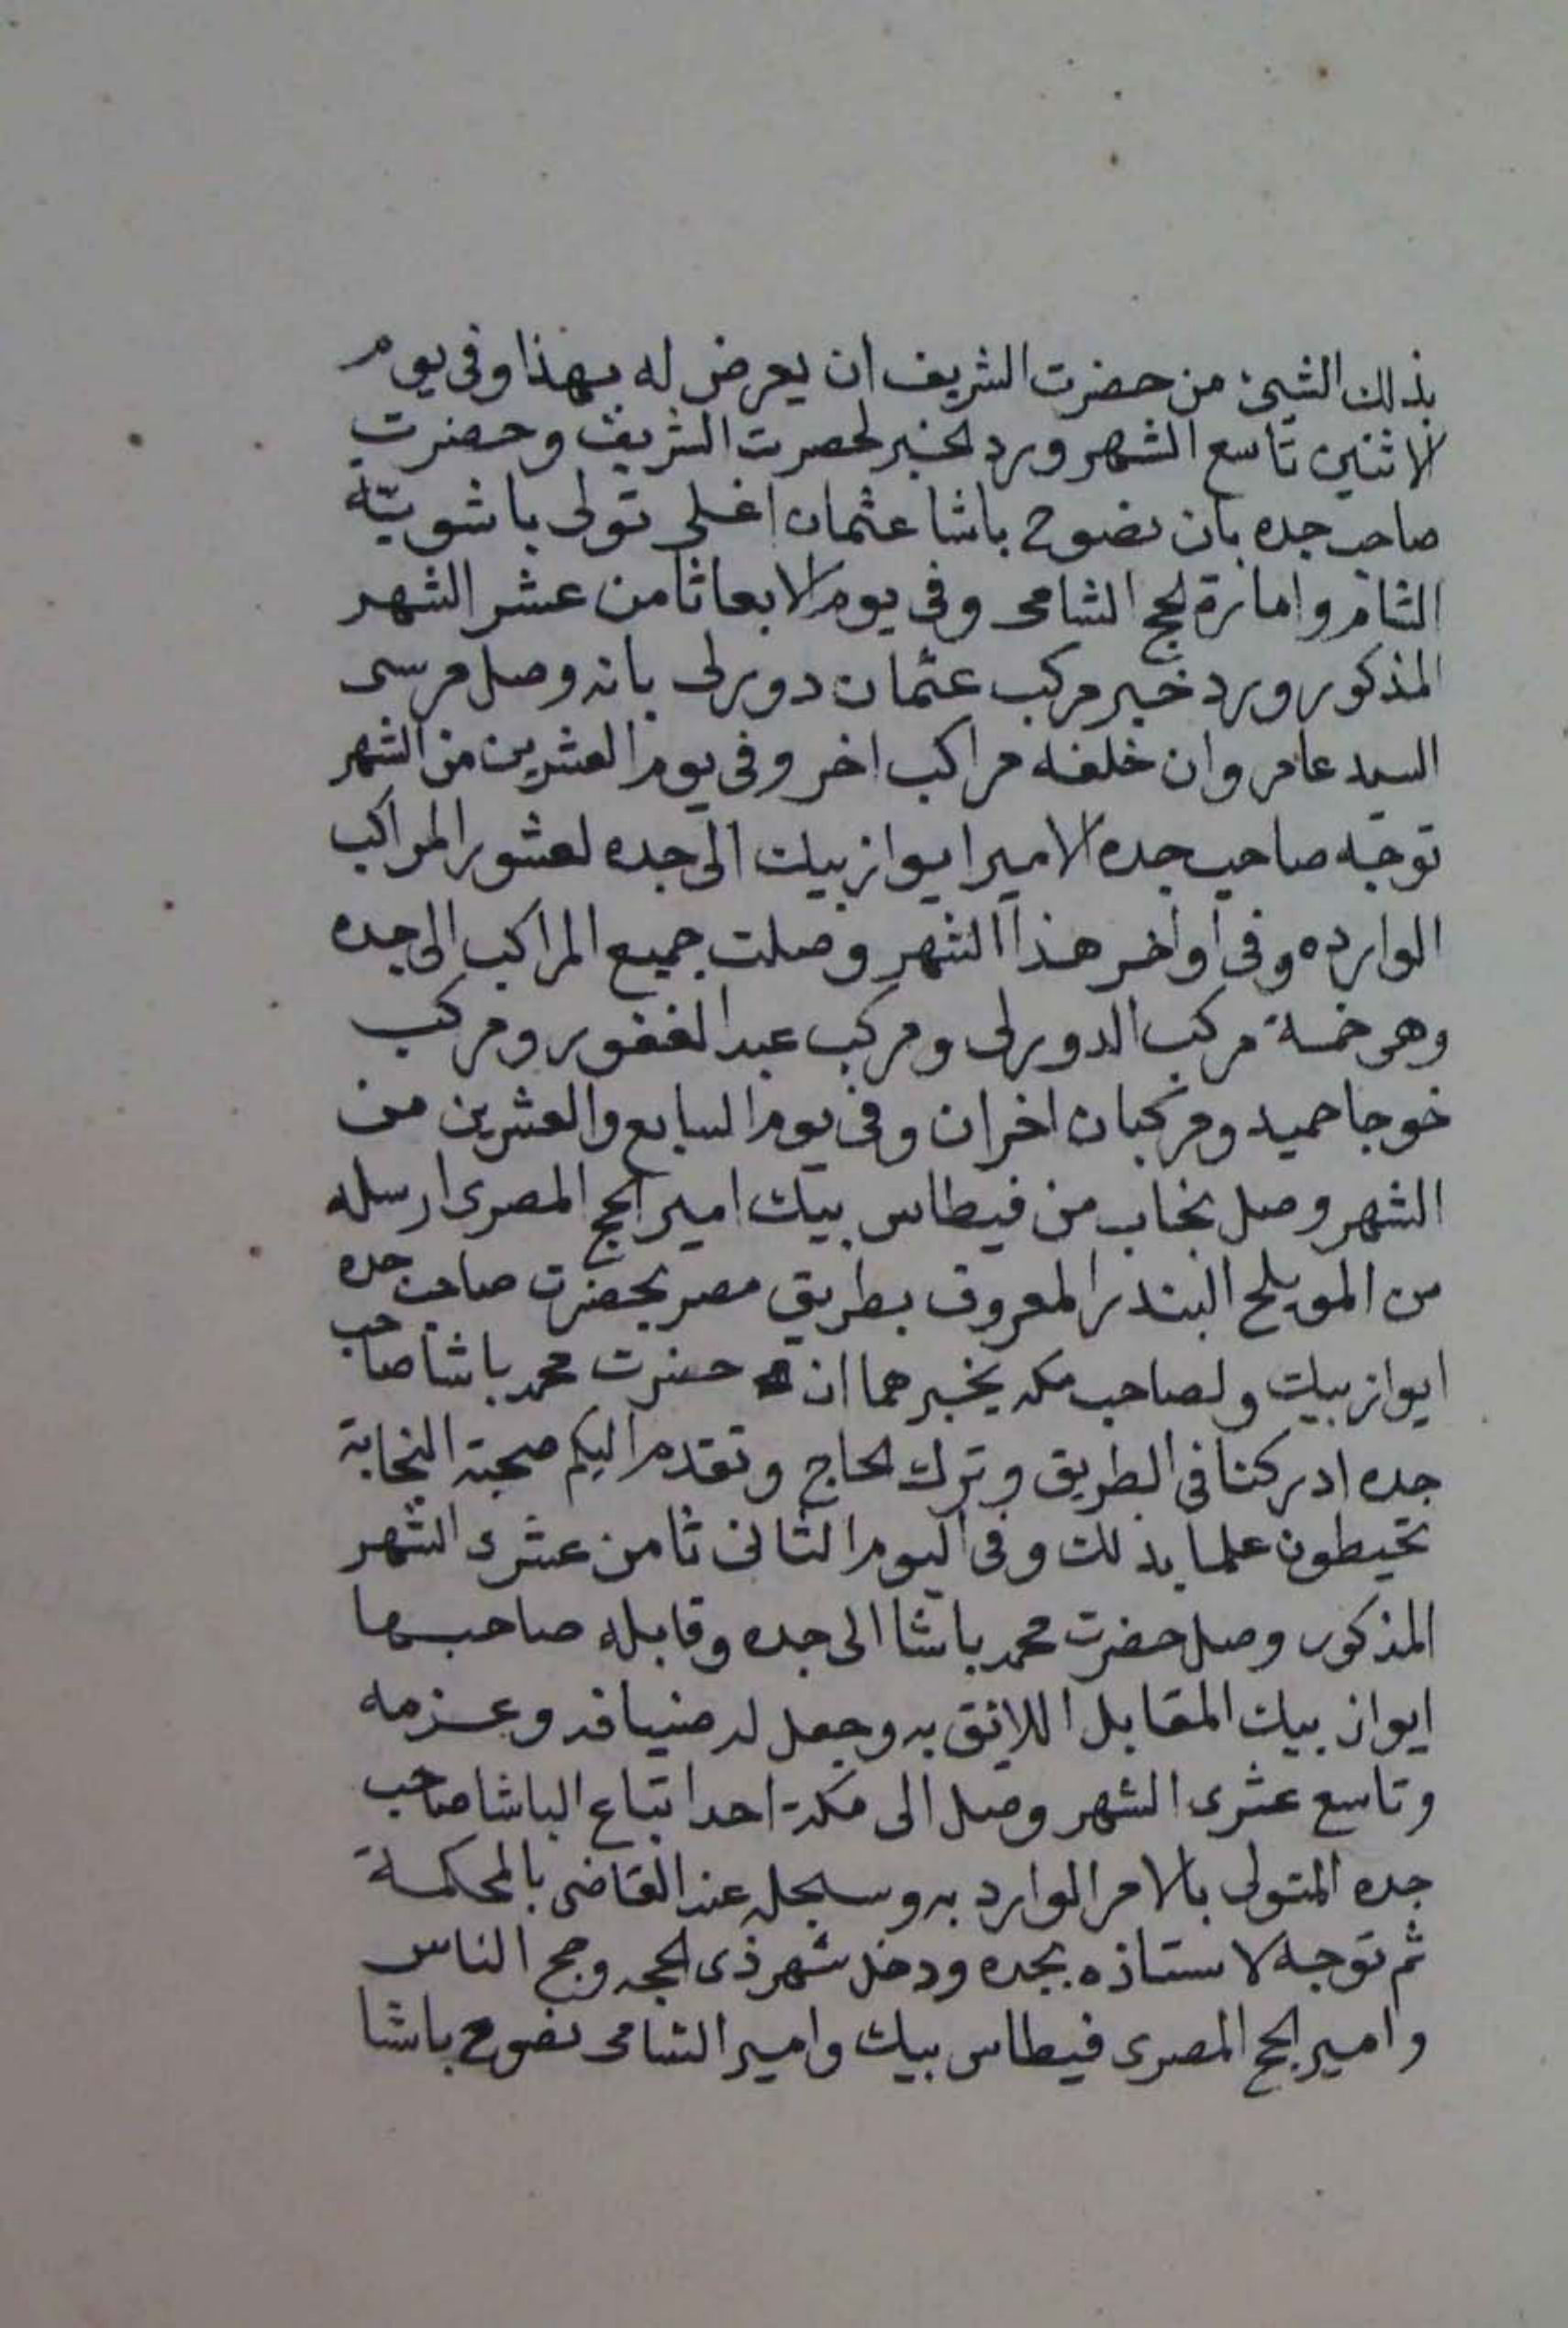 بذلك الشيئ من حضرت الشريف ان يعرض له بهذا وفى يوم
الاثنين تاسع الشهر ورد الخبر لحضرت الشريف وحضرت
صاحب جده بان نصوح باشا عثمان اغلى تولى باشويّة
الشام وامارة الحج الشامى وفى يوم الابعا ثامن عشر الشهر
المذكور ورد خبر مركب عثمان دورلى بانه وصل مرسى
السيد عامر وان خلفه مراكب اخر وفى يوم العشرين من الشهر
توجه صاحب جده الامير ايواز بيك الى جده لعشور المراكب
الوارده وفى اواخر هذا الشهر وصلت جميع المراكب الى جده
وهى خمسة مركب الدورلى ومركب عبد الغفور ومركب
خوجا حميد ومركبان اخران وفى يوم السابع والعشرين من
الشهر وصل نجاب من فيطاس بيك امير الحج المصرى ارسله
من المويلح البندر المعروف بطريق مصر لحضرت صاحب جده
ايواز بيك ولصاحب مكه يخبرهما ان حضرت محمد باشا صاحب
جده ادركنا فى الطريق وترك الحاج وتقدم اليكم صحبة النجابة
تحيطون علما بذلك وفى اليوم الثانى ثامن عشرى الشهر
المذكور وصل حضرت محمد باشا الى جده وقابله صاحبها
ايواز بيك المقابل اللائق به وجعل له ضيافه وعزمه
وتاسع عشرى الشهر وصل الى مكة احد اتباع الباشا صاحب
جده المتولى بالامر الوارد به وسجله عند القاضى بالمحكمة
ثم توجه لاستاذه بجده ودخل شهر ذى الحجه وحج الناس
وامير الحج المصرى فيطاس بيك وامير الشامى نصوح باشا